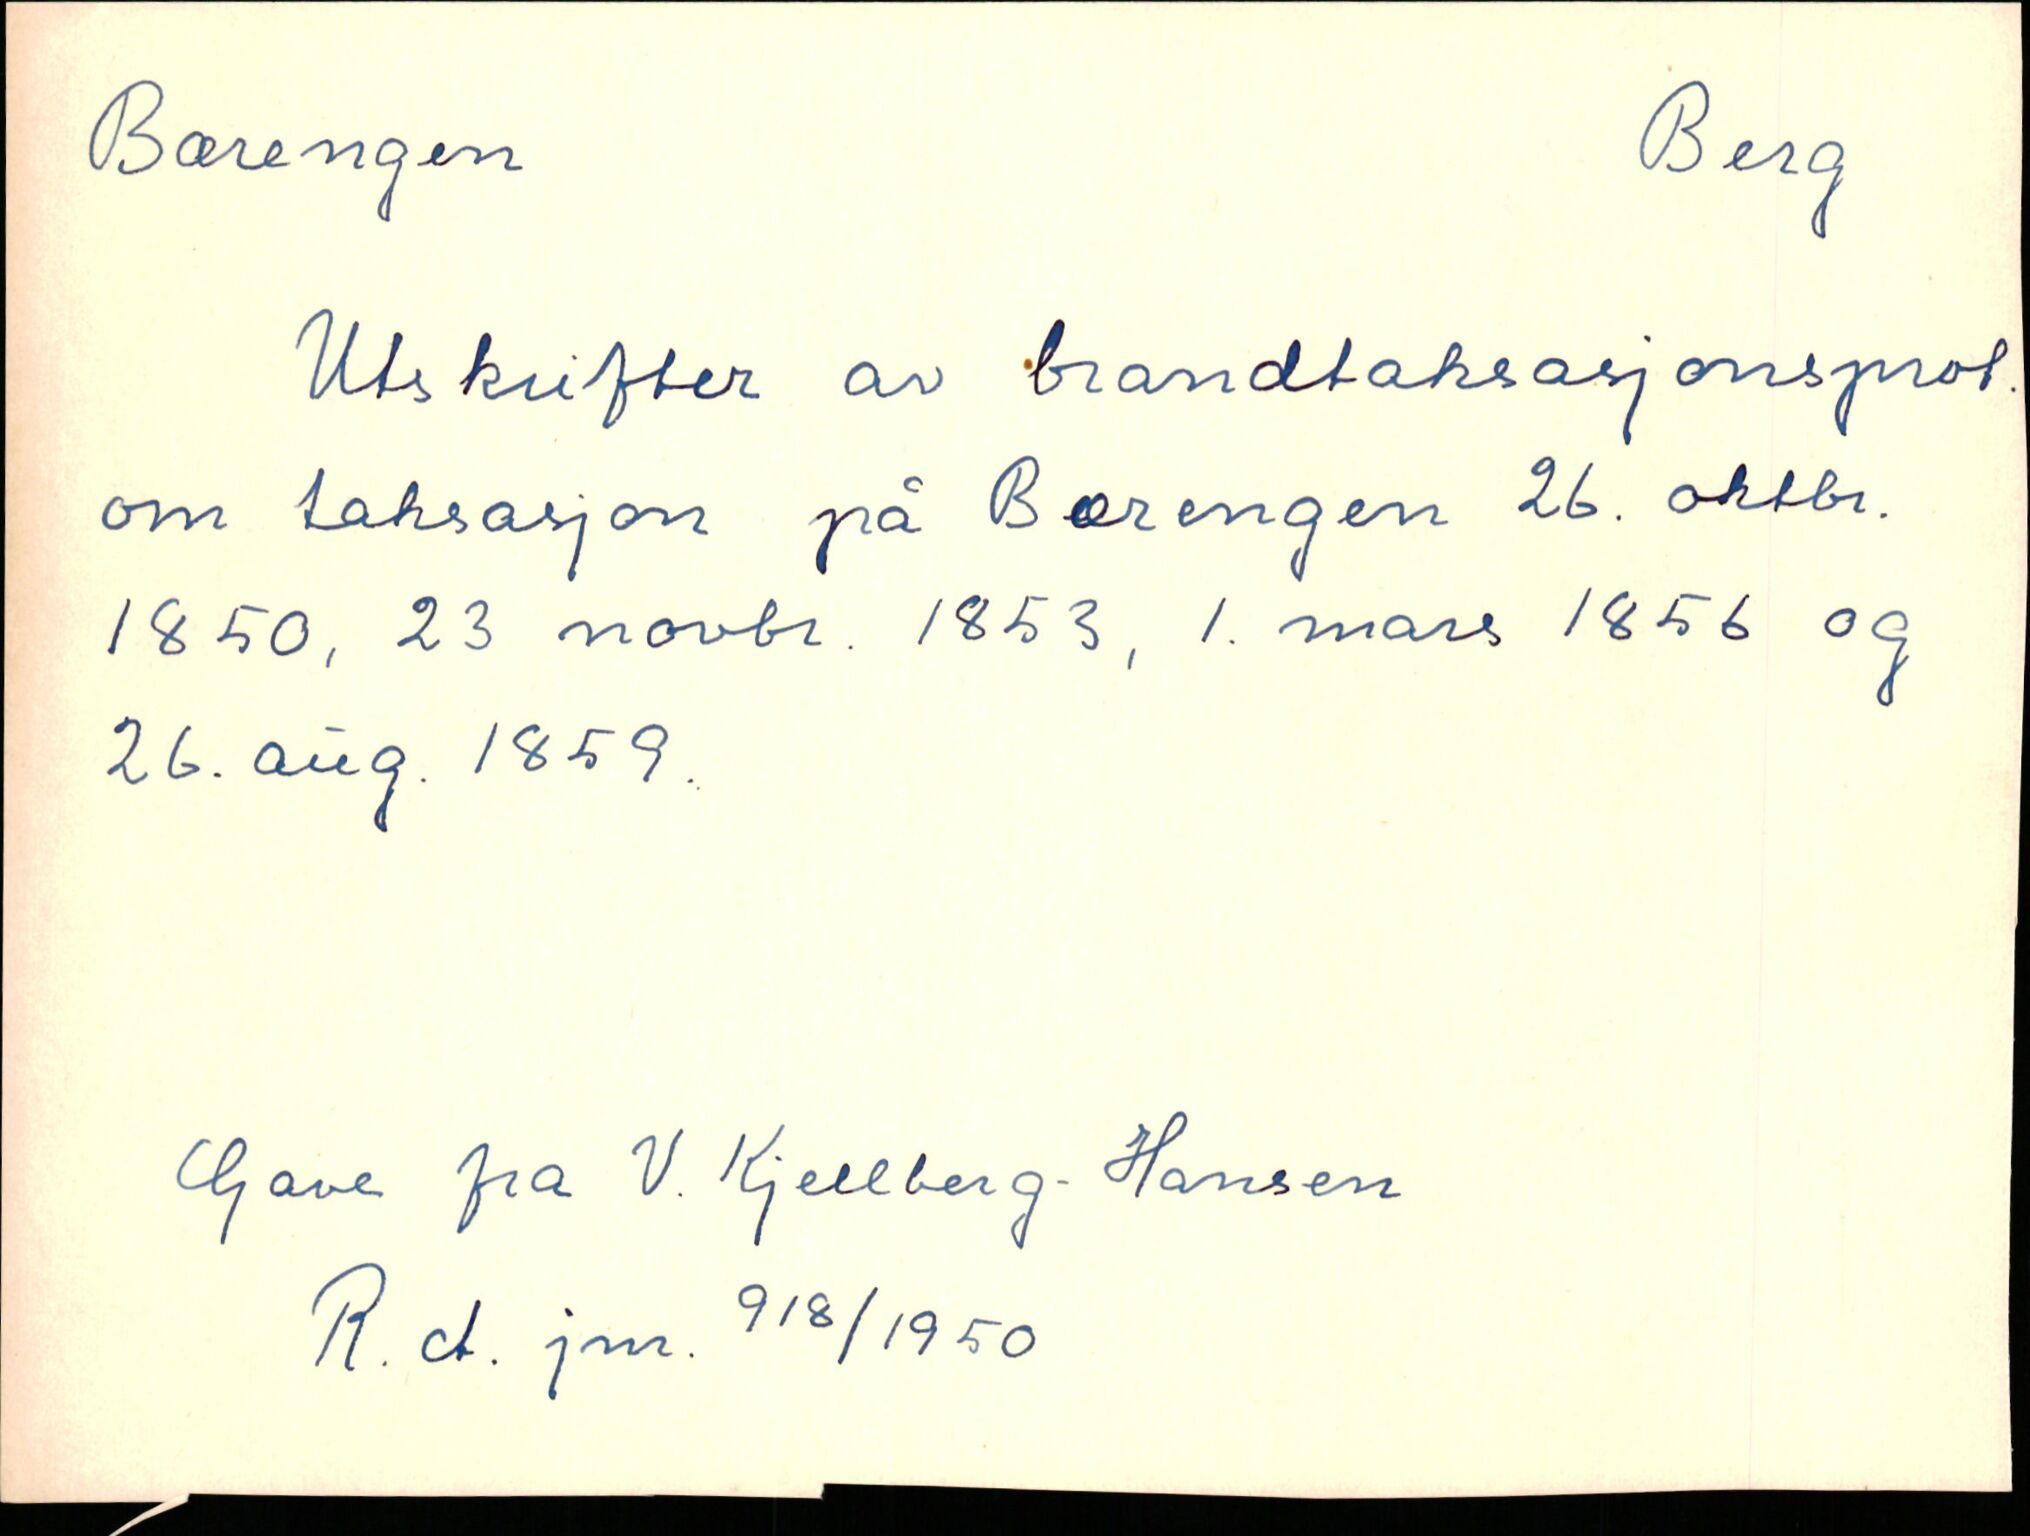 Bærengen Berg
Utskrifter av brandtaksasjonsprot.
om taksasjon på Bærengen 26. oktbr.
1850, 23 novbr. 1853, 1. mars 1856 og
26. aug. 1859.
Gave fra V. Kjellberg-Hansen
R. A. jnr. 918/1950